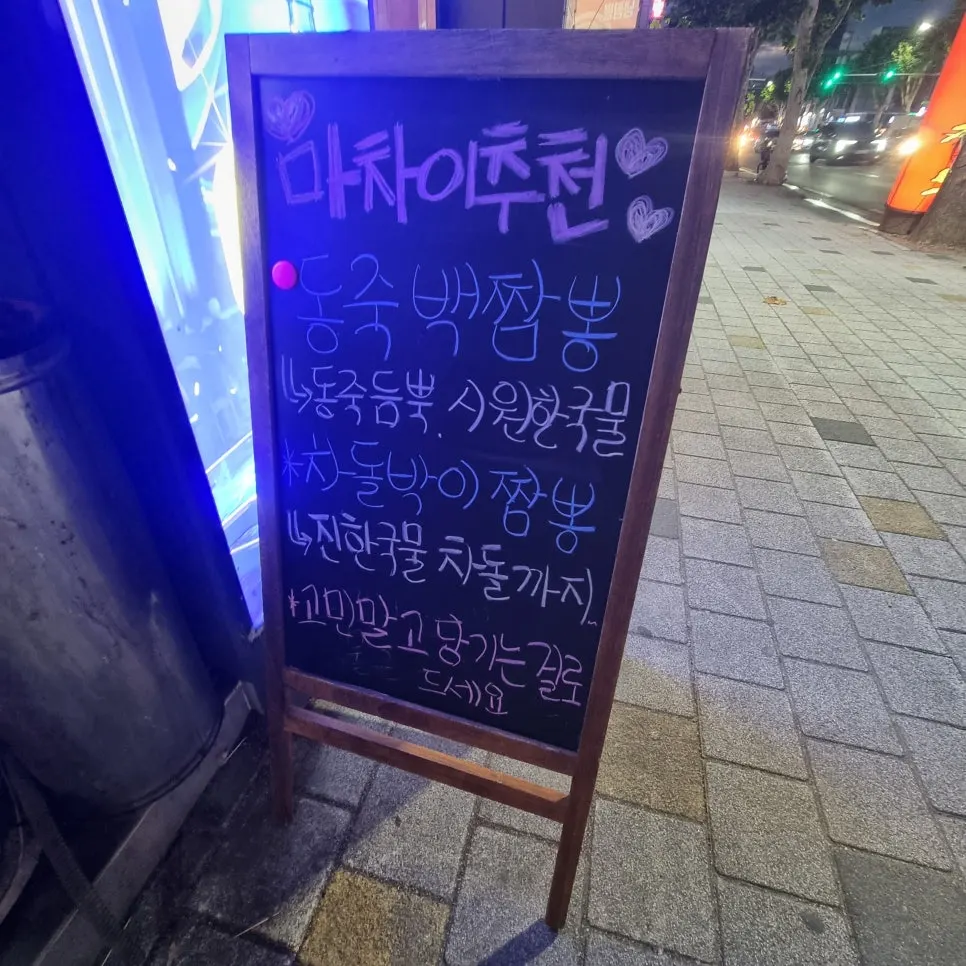 마차이추천
동죽백짬뽕
↳동죽듬뿍. 시원한국물
*차돌박이짬뽕
↳진한국물 차돌까지~
*고민말고 땅기는걸로
드세요